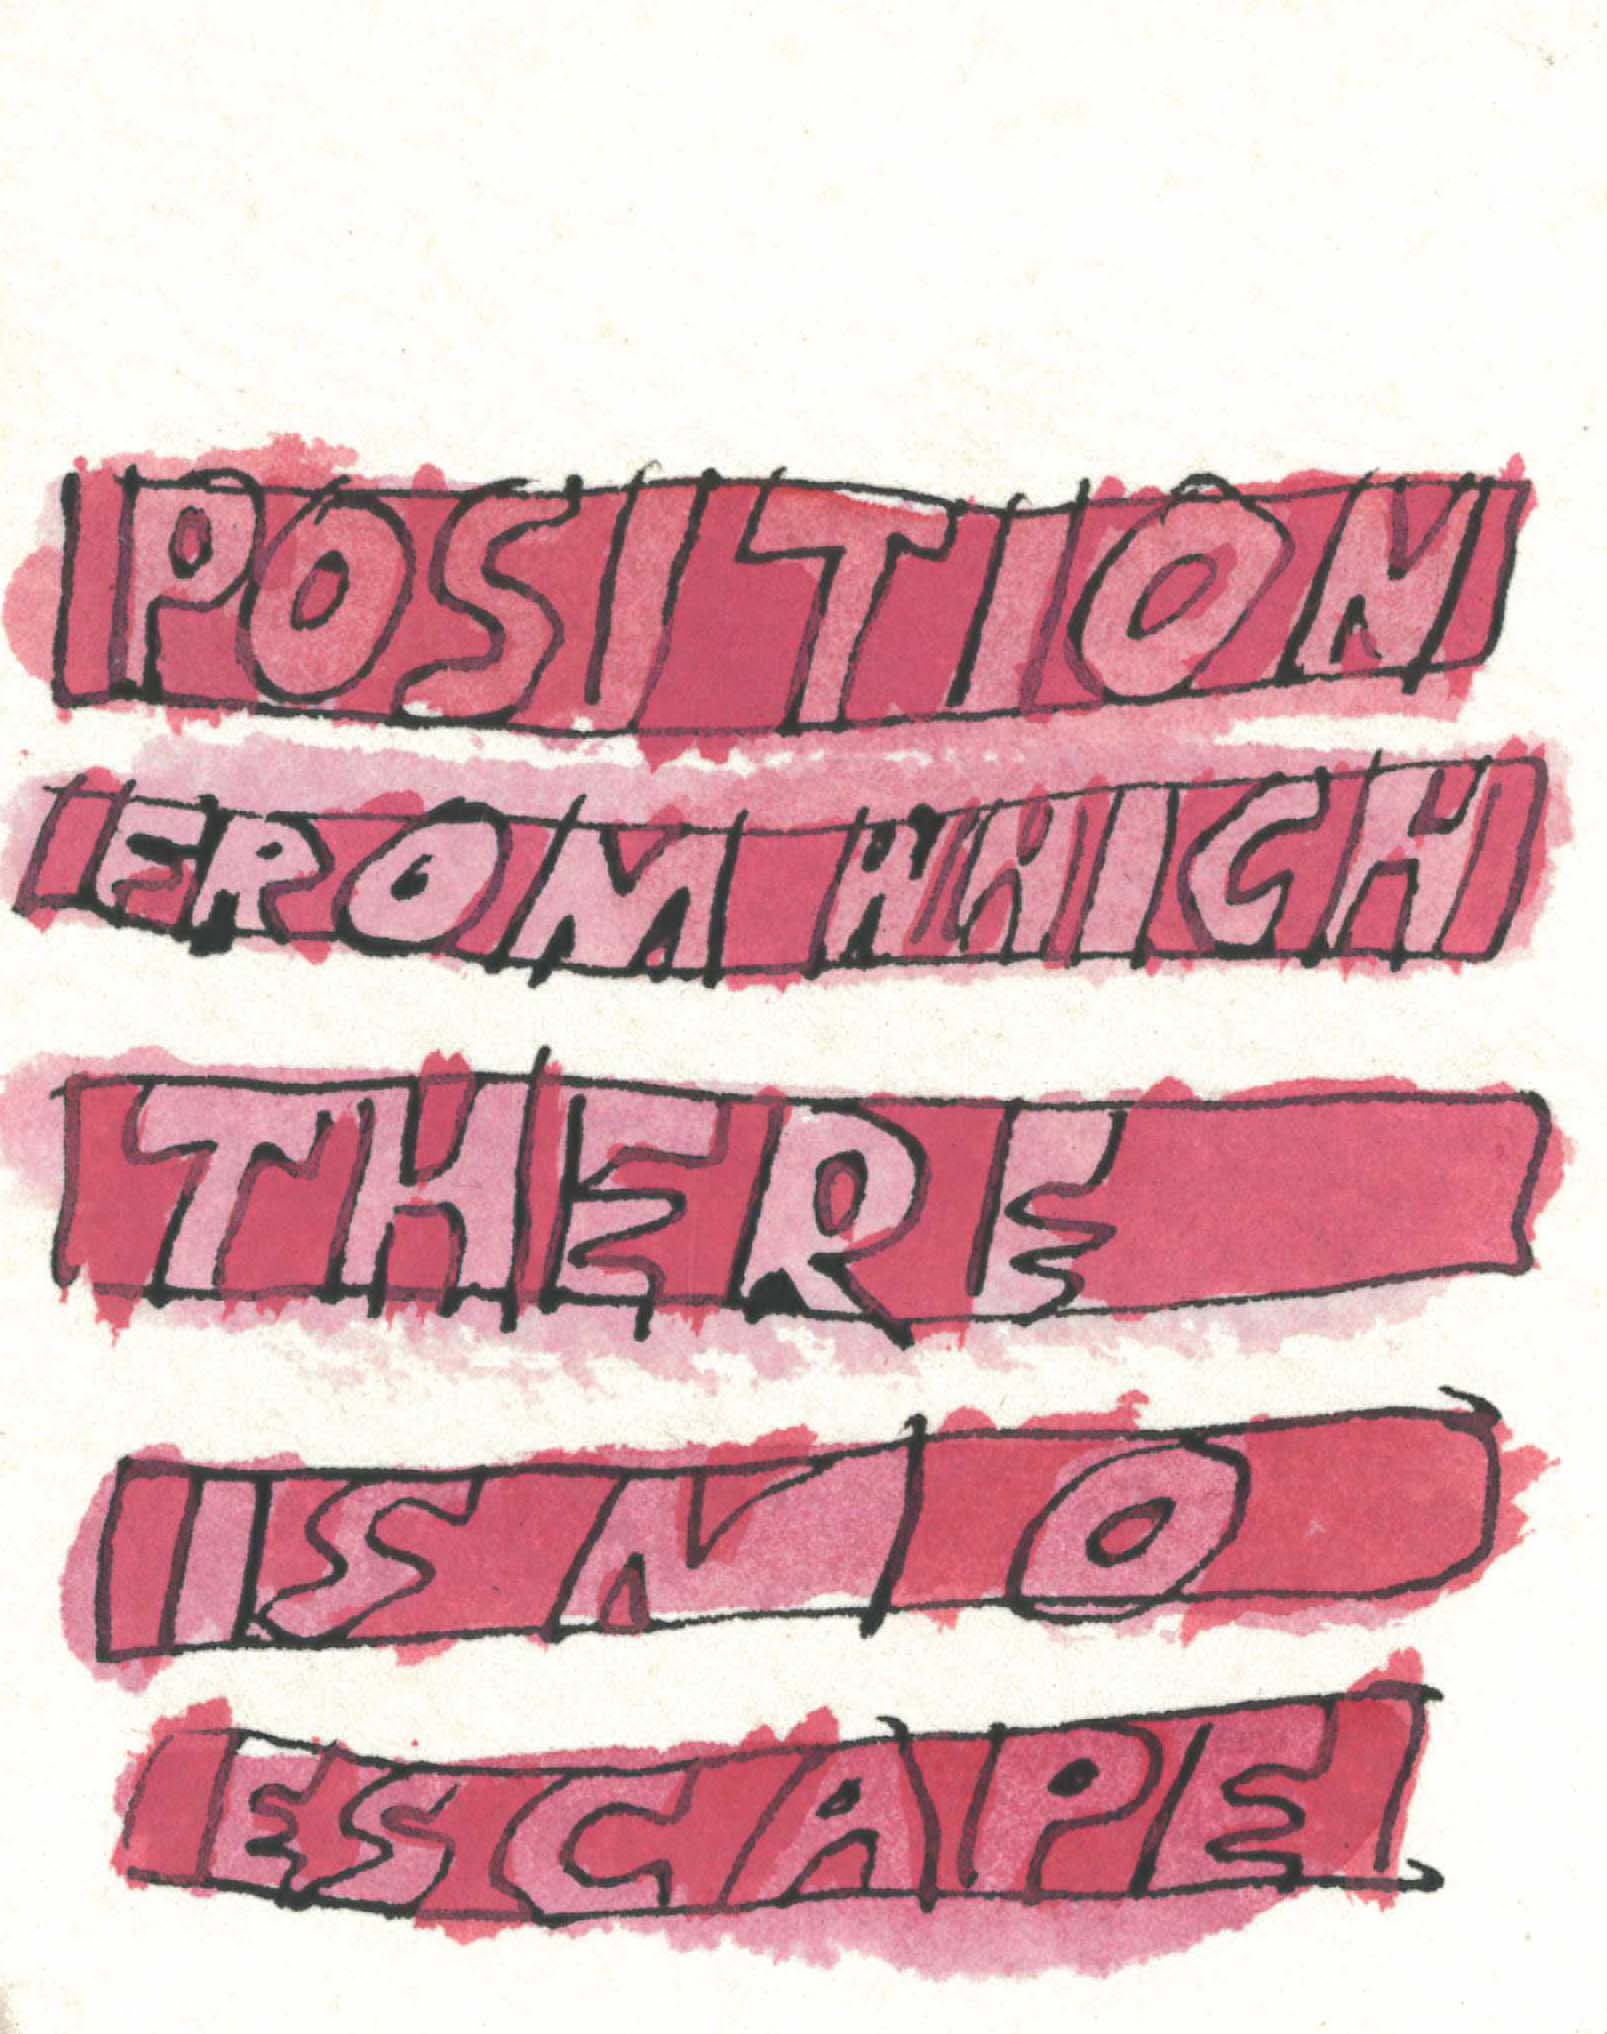 POSITION
FROM WHICH
THERE
IS NO
ESCAPE